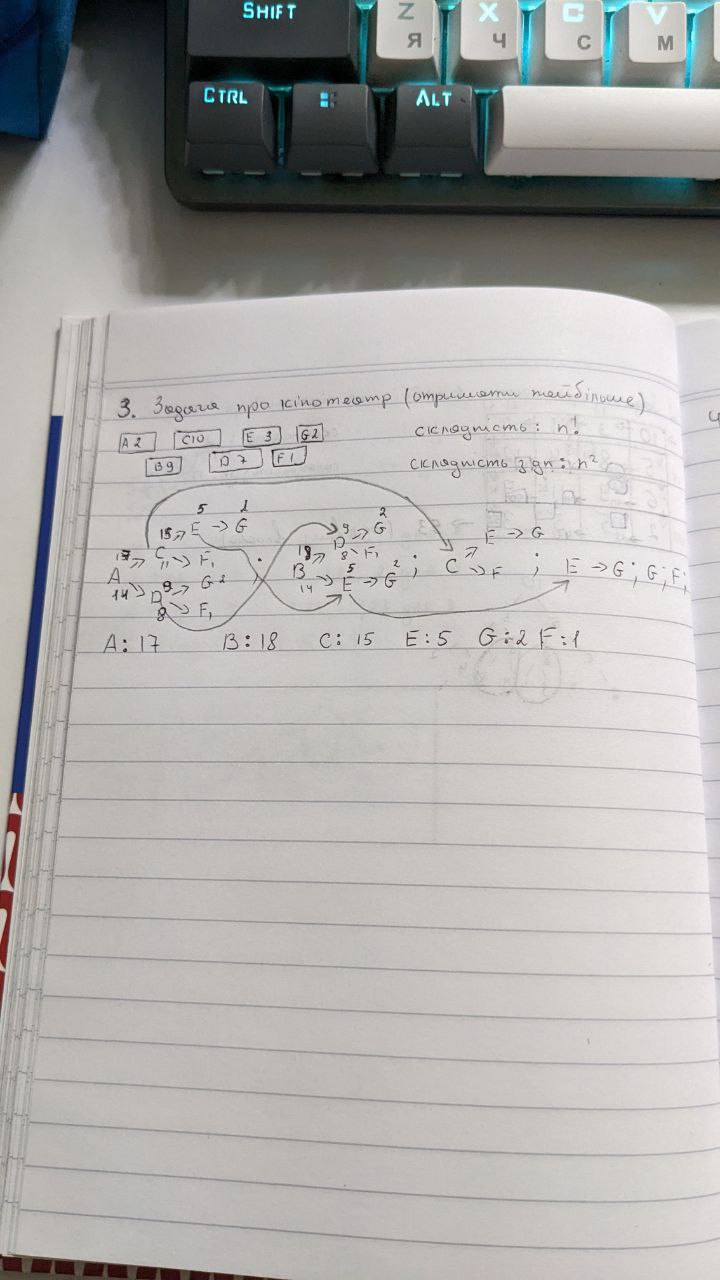 SHIFT Z Я X Ч C С V М
CTRL ALT
3. Задача про кінотеатр (отримати найбільше)
A 2 C10 E 3 G2 складність: n!
B9 D 7 F1 складність з дп: n²
5 2
15 E → G
17 C 11 F₁
A
14 D 9 G 2
8 F₁
2
18 D 9 G
8 F₁
B
14 E 5 → G 2 ;
E → G
C F ;
E → G; G; F;
A: 17 B: 18 C: 15 E: 5 G: 2 F: 1